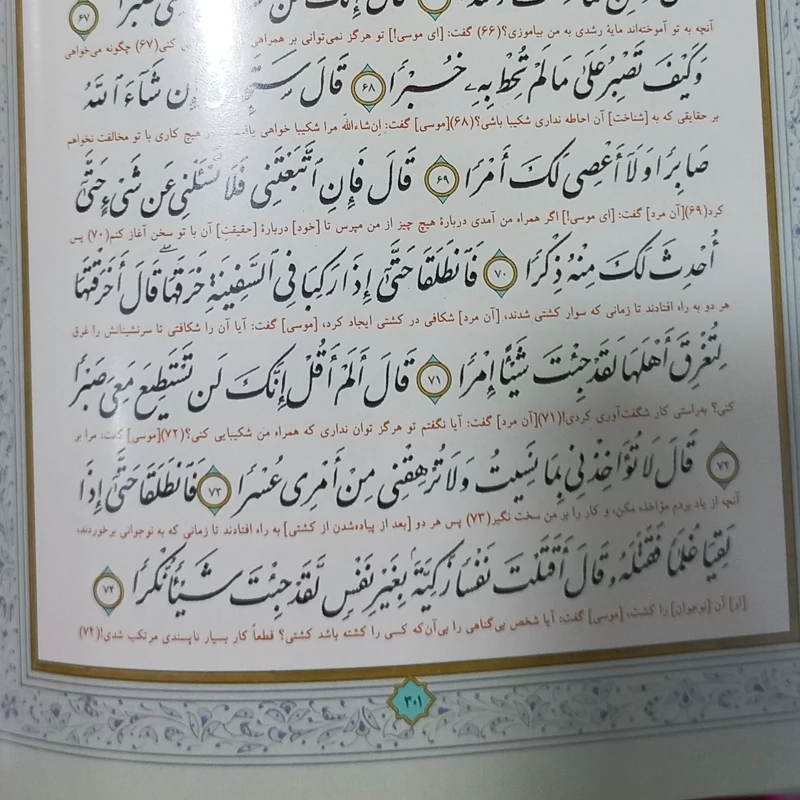 قَالَ إِنَّكَ لَن ٦٧
آنچه به تو آموخته‌اند مایهٔ رشدی به من بیاموزی؟(۶۶) گفت: [ای موسی!] تو هرگز نمی‌توانی بر همراهی کنی(۶۷) چگونه می‌خواهی
وَكَيْفَ تَصْبِرُ عَلَىٰ مَا لَمْ تُحِطْ بِهِۦ خُبْرًا ٦٨ قَالَ سَتَجِدُنِي إِن شَآءَ ٱللَّهُ
بر حقایقی که به [شناخت] آن احاطه نداری شکیبا باشی؟(۶۸)[موسی] گفت: إن‌شاءاللّه مرا شکیبا خواهی یافت، در هیچ کاری با تو مخالفت نخواهم
صَابِرًا وَلَآ أَعْصِي لَكَ أَمْرًا ٦٩ قَالَ فَإِنِ ٱتَّبَعْتَنِي فَلَا تَسْـَٔلْنِي عَن شَيْءٍ حَتَّىٰٓ
کرد(۶۹)[آن مرد] گفت: [ای موسی!] اگر همراه من آمدی دربارهٔ هیچ چیز از من مپرس تا [خود] دربارهٔ [حقیقتِ] آن با تو سخن آغاز کنم(۷۰) پس
أُحْدِثَ لَكَ مِنْهُ ذِكْرًا ٧٠ فَٱنطَلَقَا حَتَّىٰٓ إِذَا رَكِبَا فِي ٱلسَّفِينَةِ خَرَقَهَا ۖ قَالَ أَخَرَقْتَهَا
هر دو به راه افتادند تا زمانی که سوار کشتی شدند، [آن مرد] شکافی در کشتی ایجاد کرد، [موسی] گفت: آیا آن را شکافتی تا سرنشینانش را غرق
لِتُغْرِقَ أَهْلَهَا لَقَدْ جِئْتَ شَيْـًٔا إِمْرًا ٧١ قَالَ أَلَمْ أَقُلْ إِنَّكَ لَن تَسْتَطِيعَ مَعِيَ صَبْرًا
کنی؟ به‌راستی کار شگفت‌آوری کردی!(۷۱)[آن مرد] گفت: آیا نگفتم تو هرگز توان نداری که همراه من شکیبایی کنی؟(۷۲)[موسی] گفت: مرا بر
٧٢ قَالَ لَا تُؤَاخِذْنِي بِمَا نَسِيتُ وَلَا تُرْهِقْنِي مِنْ أَمْرِي عُسْرًا ٧٣ فَٱنطَلَقَا حَتَّىٰٓ إِذَا
آنچه از یاد بردم مؤاخذه مکن، و کار را بر من سخت نگیر(۷۳) پس هر دو [بعد از پیاده‌شدن از کشتی] به راه افتادند تا زمانی که به نوجوانی برخوردند،
لَقِيَا غُلَٰمًا فَقَتَلَهُۥ قَالَ أَقَتَلْتَ نَفْسًا زَكِيَّةًۢ بِغَيْرِ نَفْسٍ لَّقَدْ جِئْتَ شَيْـًٔا نُّكْرًا ٧٤
[او] آن [نوجوان] را کشت، [موسی] گفت: آیا شخص بی‌گناهی را بی‌آن‌که کسی را کشته باشد کشتی؟ قطعاً کار بسیار ناپسندی مرتکب شدی!(۷۴)
٣٠١